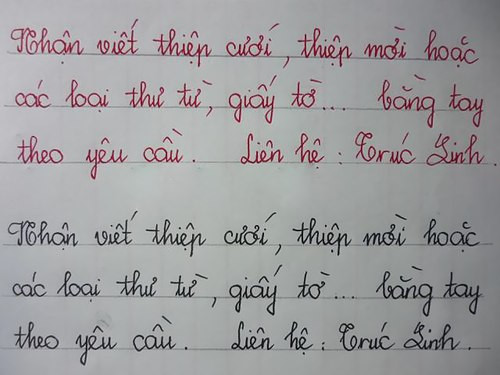 Nhận viết thiệp cưới, thiệp mời hoặc
các loại thư từ, giấy tờ... bằng tay
theo yêu cầu. Liên hệ : Trúc Linh.
Nhận viết thiệp cưới, thiệp mời hoặc
các loại thư từ, giấy tờ... bằng tay
theo yêu cầu. Liên hệ : Trúc Linh.